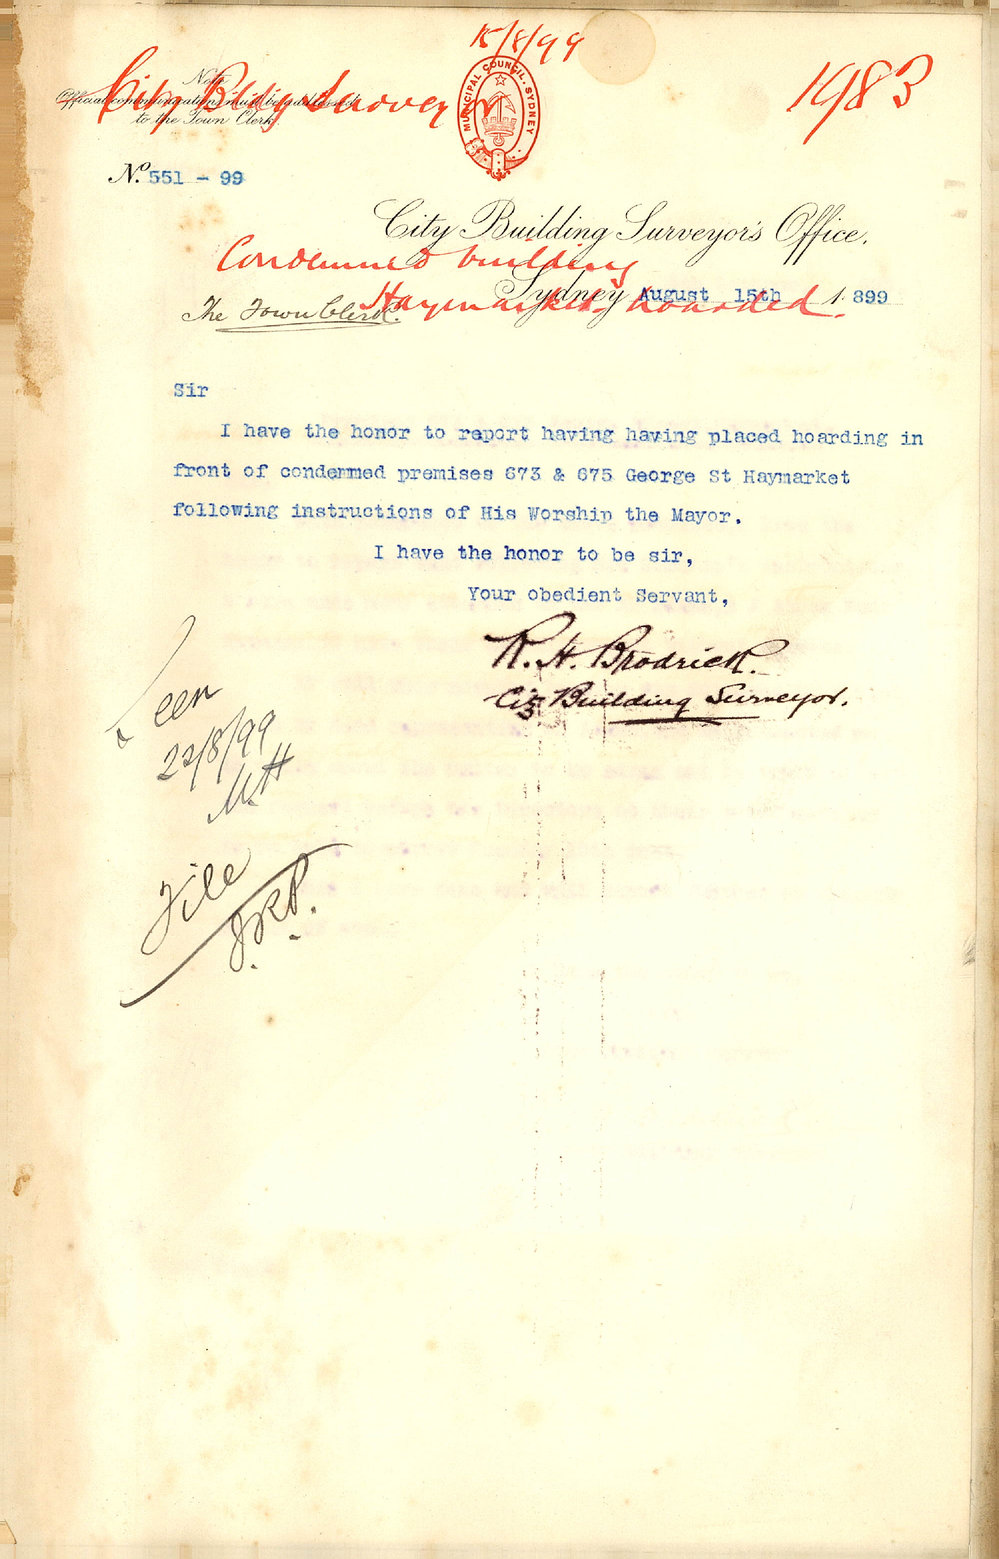 15/8/99
City Bldg Surveyor
1983
Note
Official communications must be addressed
to the Town Clerk
MUNICIPAL COUNCIL. SYDNEY
No. 551 - 99
City Building Surveyor's Office,
Condemned building
Sydney August 15th 1899
Haymarket hoarded.
The Town Clerk.
Sir
I have the honor to report having having placed hoarding in
front of condemmed premises 673 & 675 George St Haymarket
following instructions of His Worship the Mayor.
I have the honor to be sir,
Your obedient Servant,
R. H. Brodrick.
City Building Surveyor.
Seen
22/8/99
MH
File